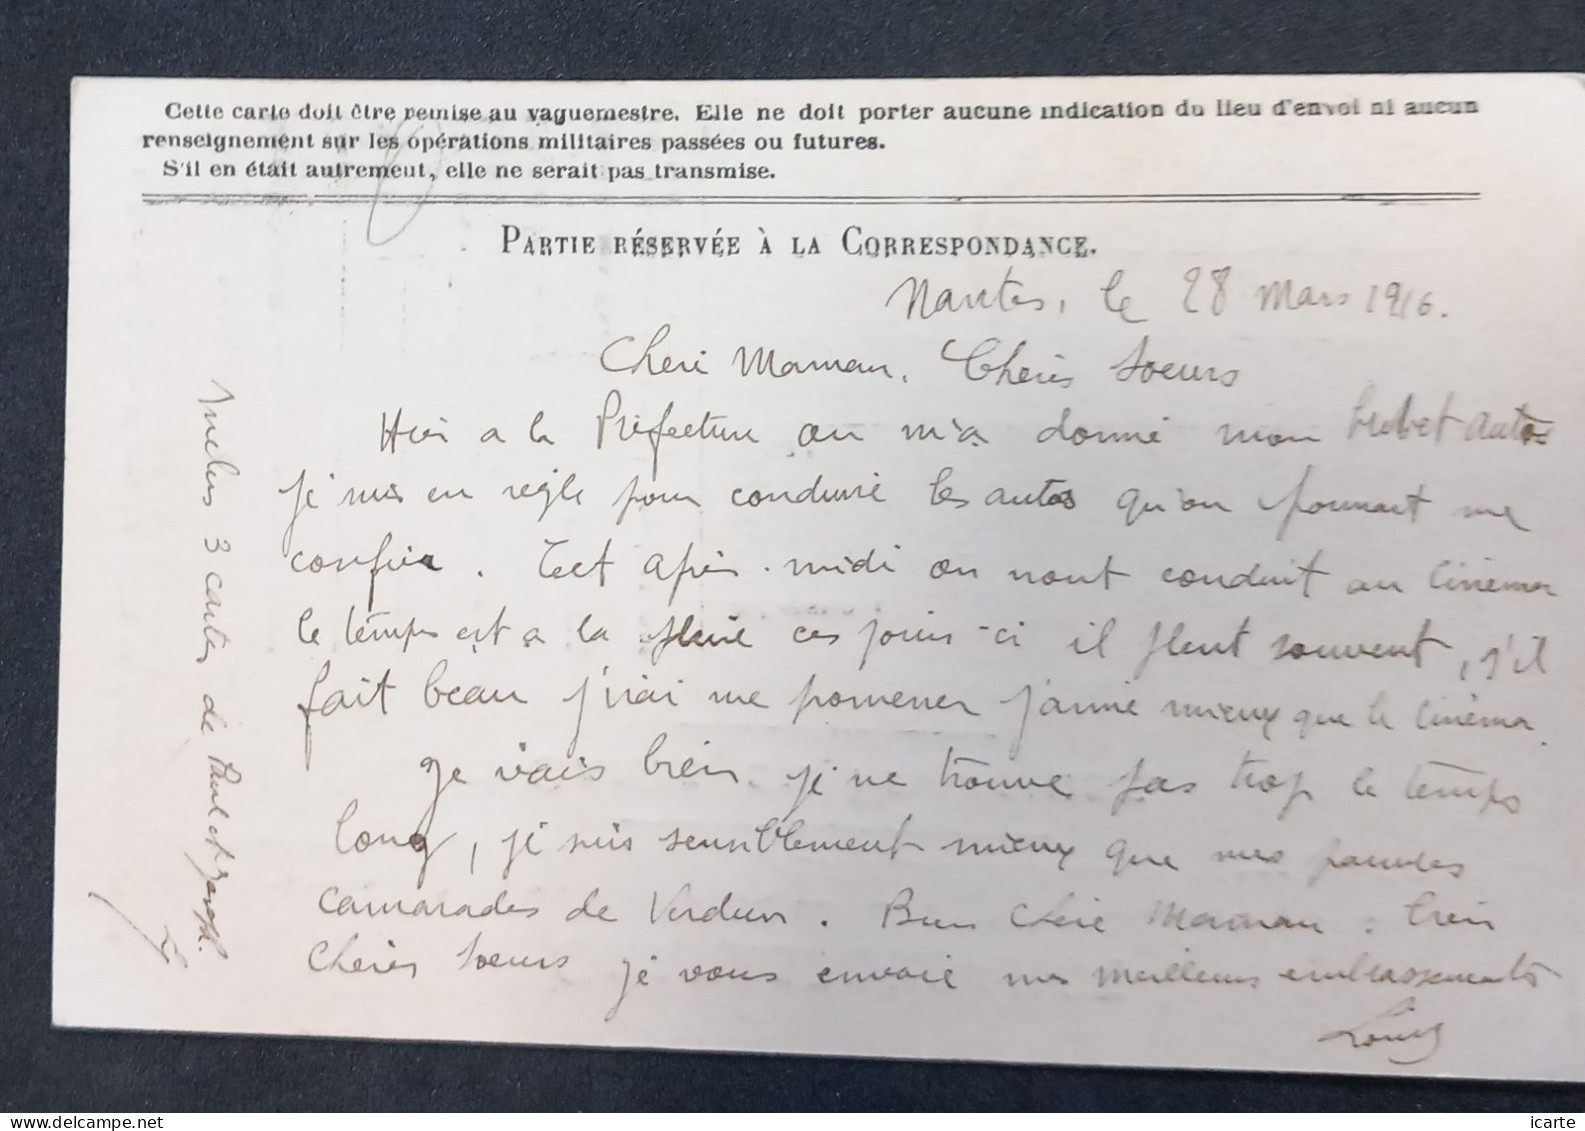 Cette carte doit être remise au vaguemestre. Elle ne doit porter aucune indication du lieu d'envoi ni aucun
renseignement sur les opérations militaires passées ou futures.
S'il en était autrement, elle ne serait pas transmise.
PARTIE RÉSERVÉE À LA CORRESPONDANCE.
Nantes, le 28 Mars 1916.
Cheri Maman. Cheries Soeurs
Hier a la Préfecture on m'a donné mon brevet autos
je suis en règle pour conduire les autos qu'on pourrait me
confier. Cet après-midi on nout conduit au Cinema
le temps est a la pluie ces jours-ci il pleut souvent, s'il
fait beau j'irai me promener j'aime mieux que le Cinéma.
Je vais bien. je ne trouve pas trop le temps
long, je suis sensiblement mieux que mes pauvres
camarades de Verdun. Bien Chère Maman. bien
Chères Soeurs je vous envoie mes meilleurs embrassements
Louis
Inclus 3 cartes de Paul et Joseph.
delcampe.net
icarte